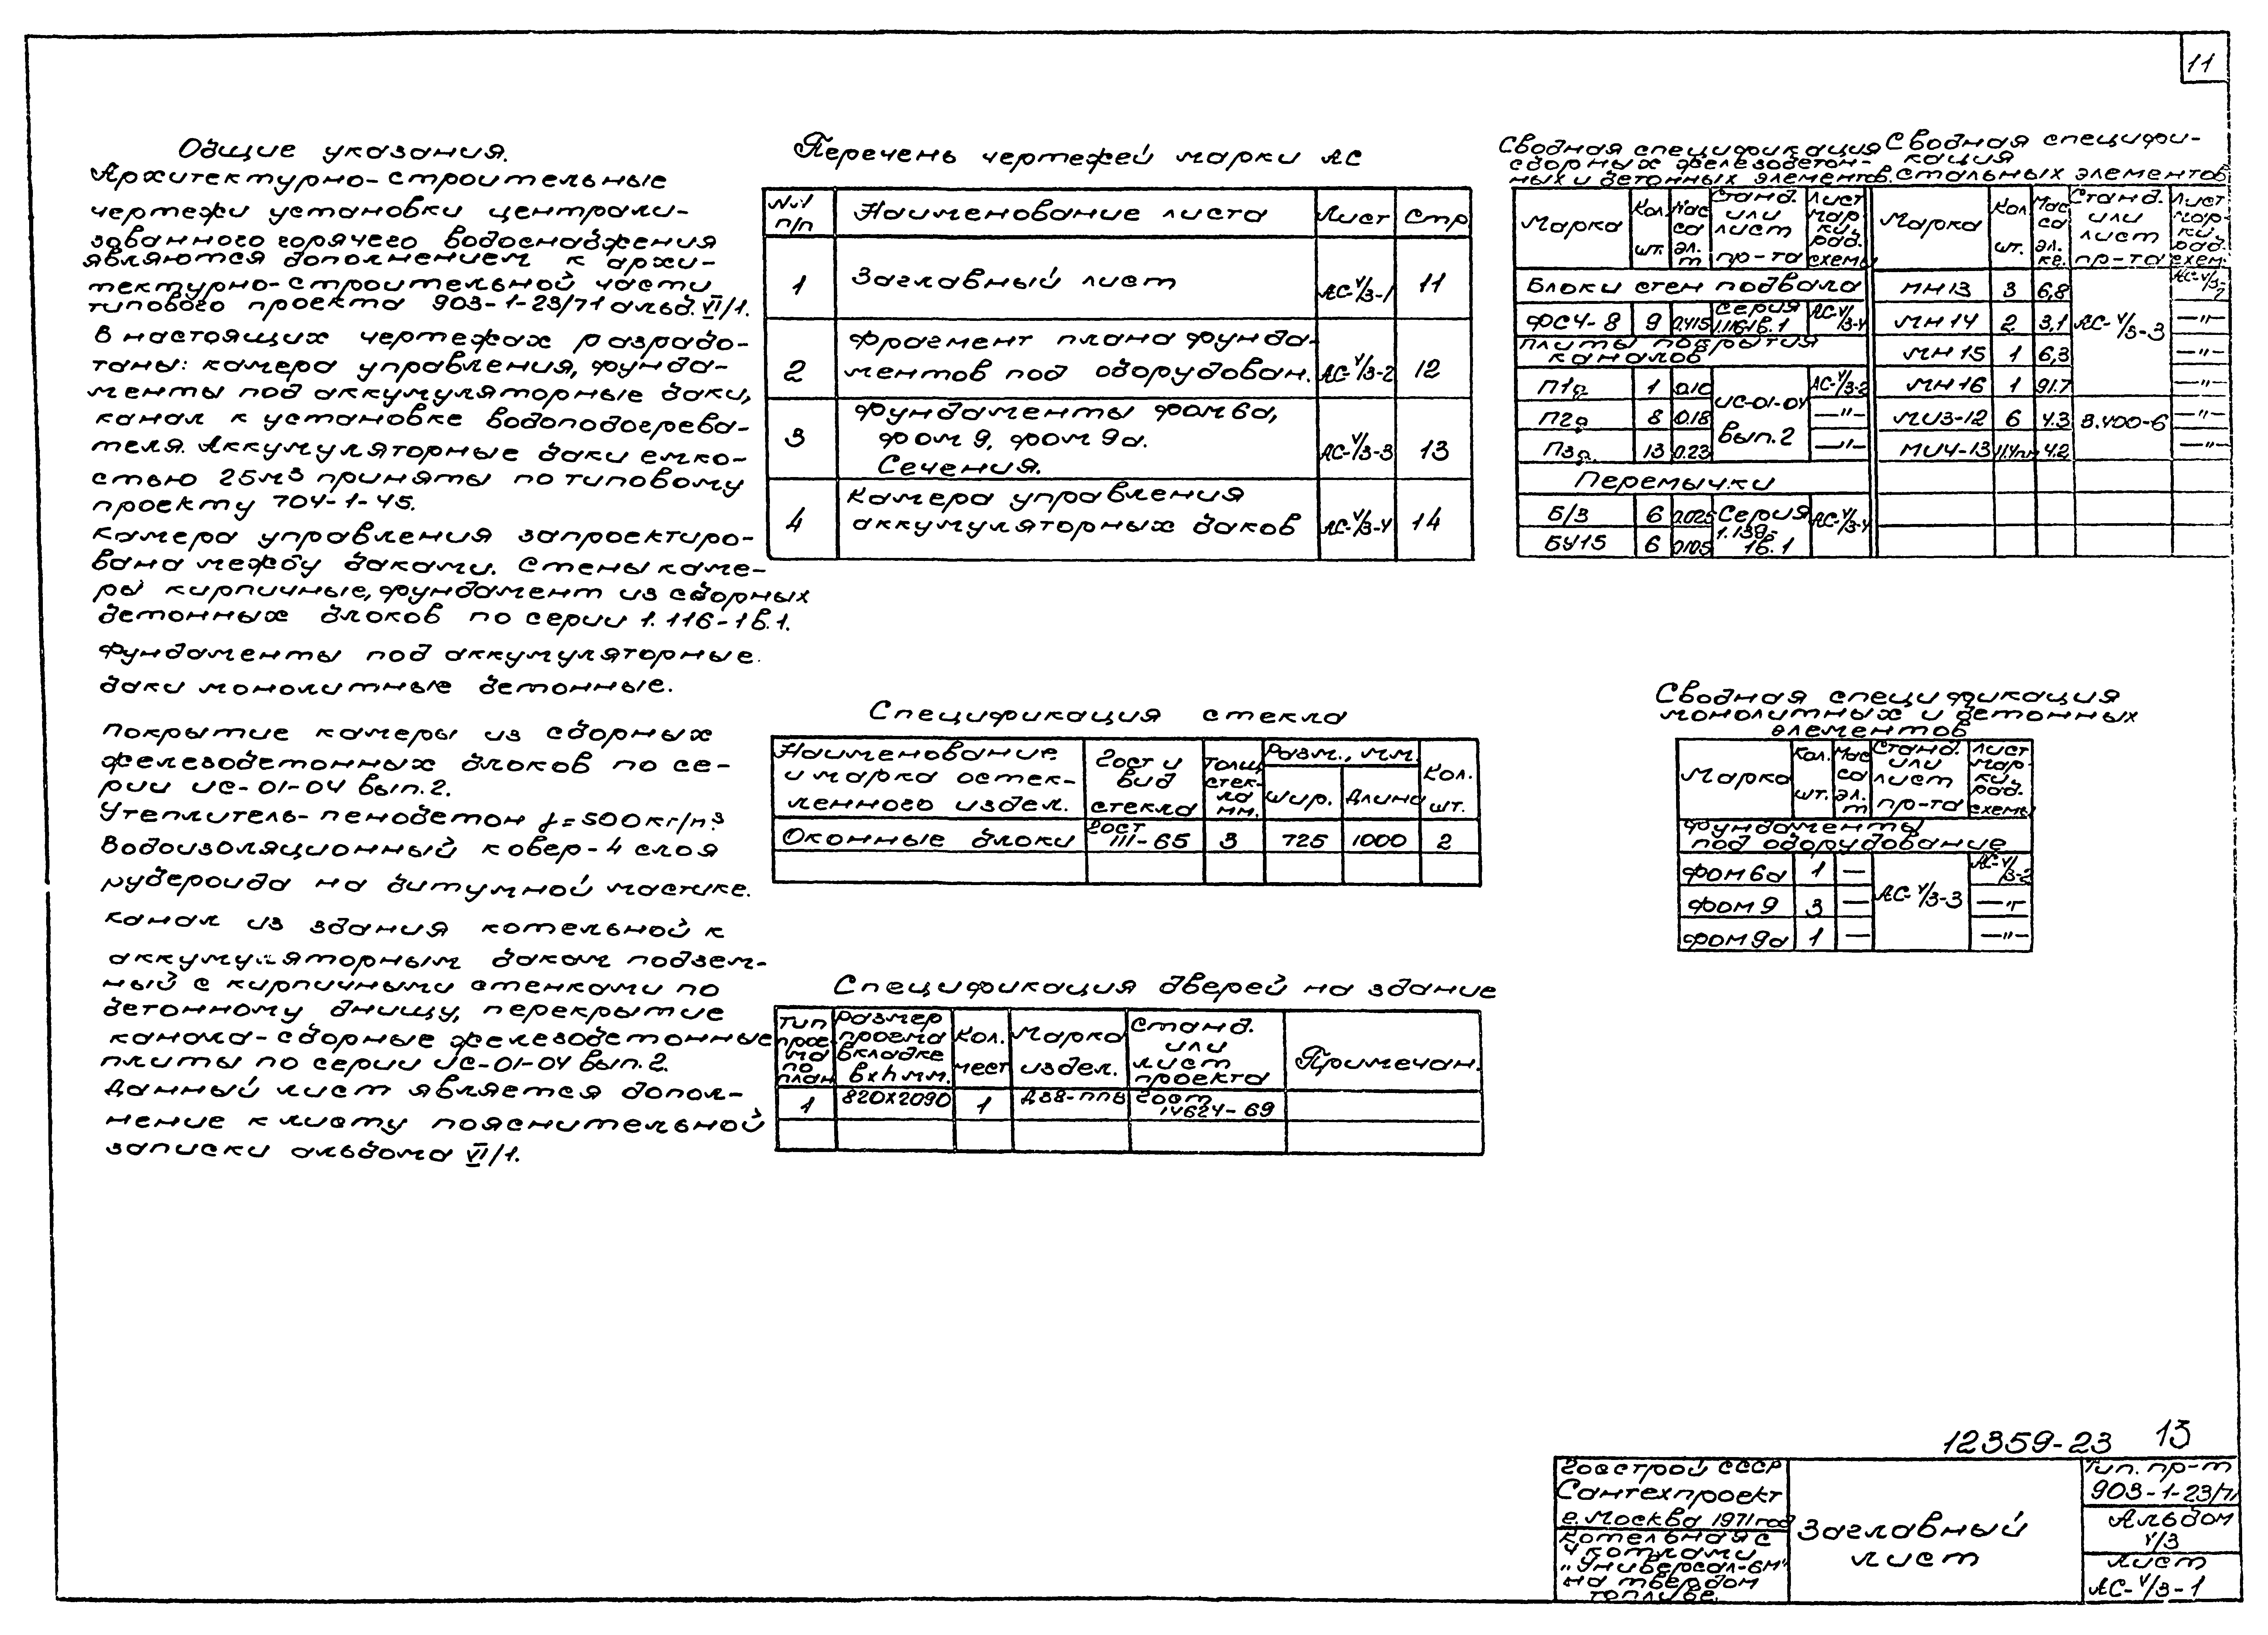 11
Общие указания.
Архитектурно-строительные
чертежи установки централи-
зованного горячего водоснабжения
являются дополнением к архи-
тектурно-строительной части
типового проекта 903-1-23/71 альб. VI/1.
В настоящих чертежах разрабо-
таны: камера управления, фунда-
менты под аккумуляторные баки,
канал к установке водоподогрева-
теля. Аккумуляторные баки емко-
стью 25м3 приняты по типовому
проекту 704-1-45.
Камера управления запроектиро-
вана между баками. Стены каме-
ры кирпичные, фундамент из сборных
бетонных блоков по серии 1.116-1в.1.
Фундаменты под аккумуляторные
баки монолитные бетонные.
Покрытие камеры из сборных
железобетонных блоков по се-
рии ИС-01-04 вып.2.
Утеплитель-пенобетон γ=500кг/м3
Водоизоляционный ковер-4 слоя
рубероида на битумной мастике.
Канал из здания котельной к
аккумуляторным бакам подзем-
ный с кирпичными стенками по
бетонному днищу, перекрытие
канала-сборные железобетонные
плиты по серии ИС-01-04 вып.2.
Данный лист является допол-
нение к листу пояснительной
записки альбома VI/1.
Перечень чертежей марки АС
№№ п/п Наименование листа Лист Стр
1 Заглавный лист АС-V/3-1 11
2 Фрагмент плана фунда-
ментов под оборудован. АС-V/3-2 12
3 Фундаменты фом6а,
фом9, фом9а.
Сечения. АС-V/3-3 13
4 Камера управления
аккумуляторных баков АС-V/3-4 14
Спецификация стекла
Наименование и марка остек-
ленного издел. Гост и вид стекла Толщ. стек-
ла мм. Разм., мм. Шир. Длина Кол. шт.
Оконные блоки Гост 111-65 3 725 1000 2
Спецификация дверей на здание
Тип прое-
ма по план Размер проема в кладке вхh мм. Кол. мест Марка издел. Станд. или лист проекта Примечан.
1 820х2090 1 Д38-ппв Гост 14624-69
Сводная спецификация
сборных железобетон-
ных и бетонных элементов.
Марка Кол. шт. Мас
са эл. т Станд. или лист пр-та Лист мар-
ки. рад. схемы
Блоки стен подвала
ФС4-8 9 0.415 Серия 1.116-1в.1 АС-V/3-4
Плиты покрытия
каналов
П1д 1 0.10 ИС-01-04 вып.2 АС-V/3-2
П2д 8 0.18 —"—
П3д 13 0.23 —"—
Перемычки
Б13 6 0.025 Серия 1.139-
1в.1 АС-V/3-4
БУ15 6 0.105
Сводная специфи-
кация
стальных элементов
Марка Кол. шт. Мас
са эл. кг. Станд. или лист пр-та Лист мар-
ки. рад. схем.
МН13 3 6,8 АС-V/3-3
МН14 2 3,1 —"—
МН15 1 6,3 —"—
МН16 1 91.7 —"—
МИ3-12 6 4.3 3.400-6 —"—
МИ4-13 11.4пм 4.2 —"—
Сводная спецификация
монолитных и бетонных
элементов
Марка Кол. шт. Мас
са эл. т Станд. или лист пр-та Лист мар-
ки. рад. схемы
Фундаменты
под оборудование
фом6а 1 — АС-V/3-3 АС-V/3-2
фом9 3 — —"—
фом9а 1 — —"—
12359-23 13
Госстрой СССР
Сантехпроект
г. Москва 1971 год
Котельная с
4 котлами
"Универсал-6М"
на твердом
топливе.
Заглавный
лист
Тип. пр-т
903-1-23/71
Альбом
V/3
Лист
АС-V/3-1